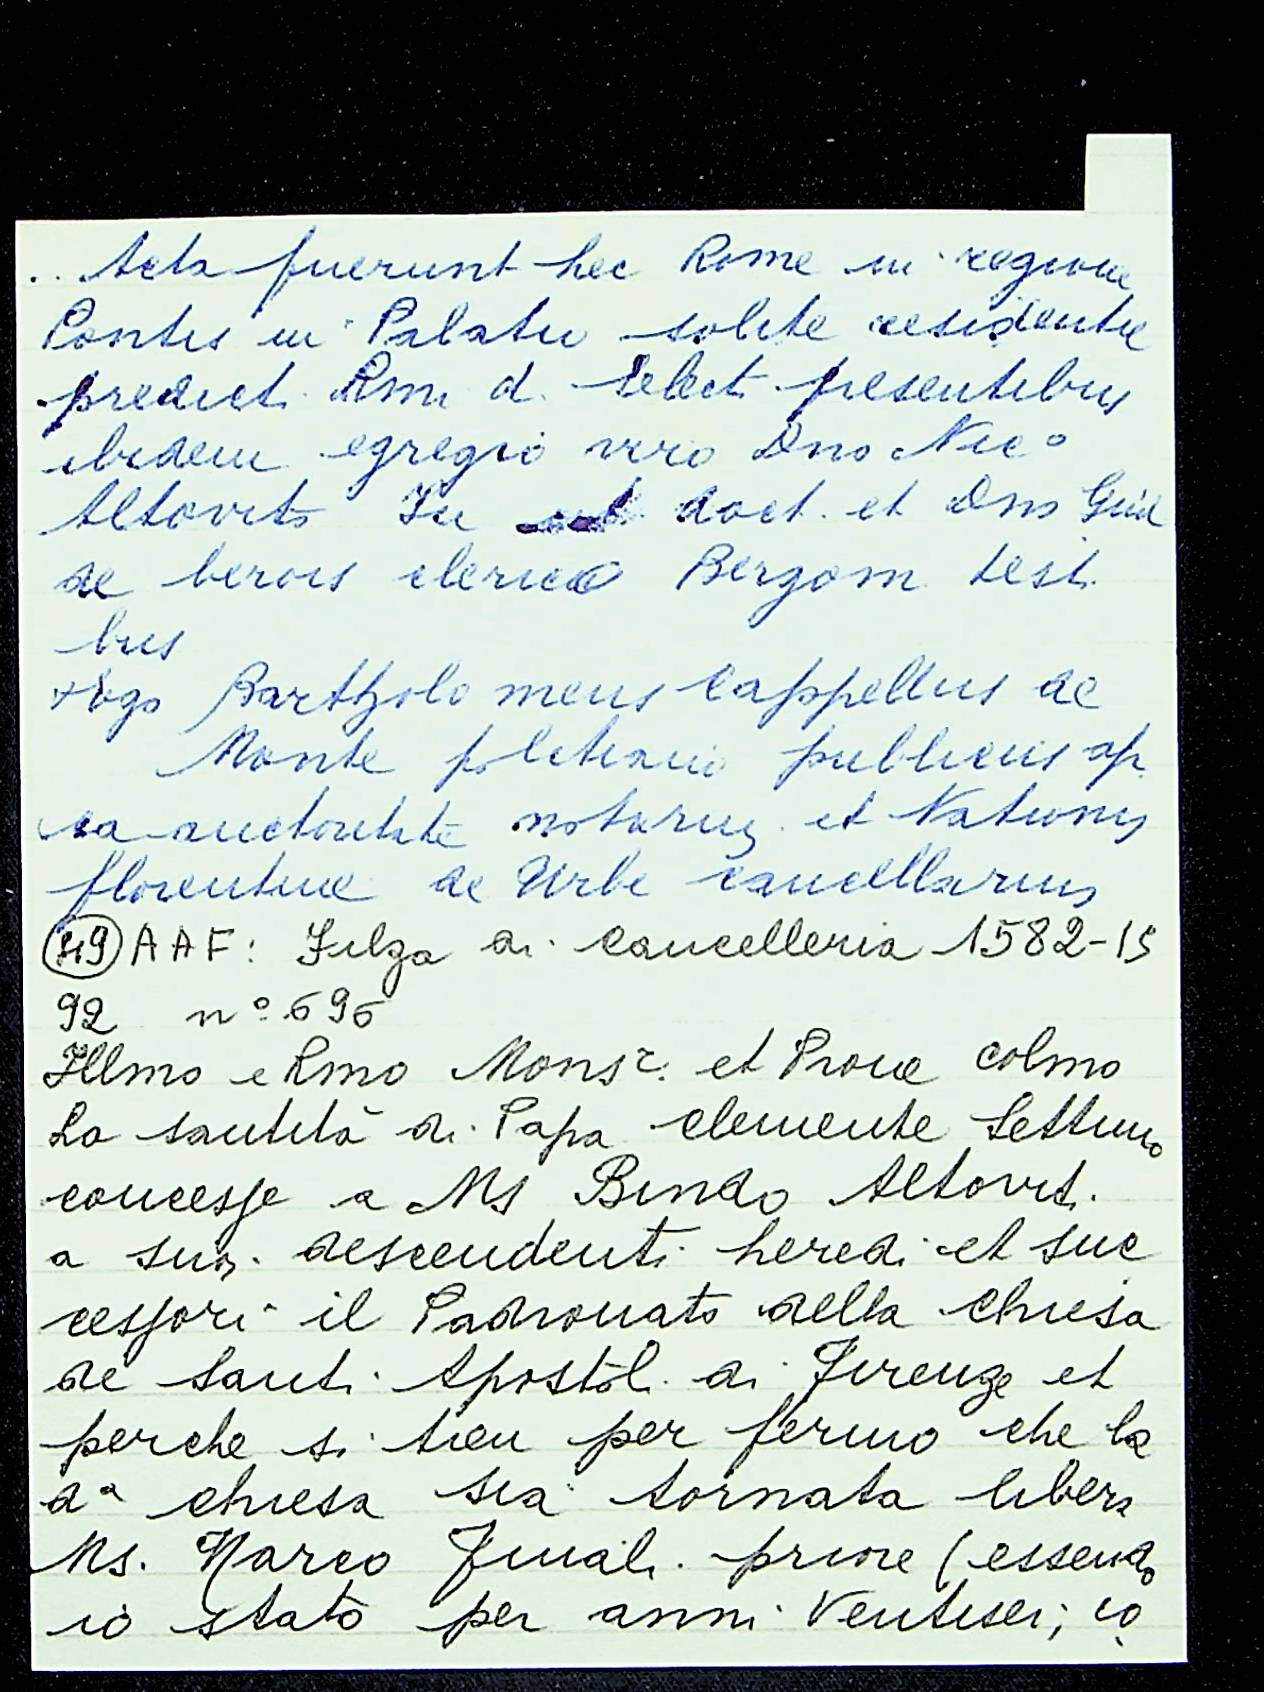 .. Acta fuerunt hec Rome in regione
Pontis in Palatio solite residentie
predict. Rmi d. Elect. presentibus
ibidem egregio viro Dno Nic°
Altovito Iu doct. et Dno Guid
de berois clerico Bergom test.
bus
+ Ego Bartholomeus Cappellus de
Monte politiano publicus ap.
ca auctoritate notarius et Nationis
florentine de Urbe cancellarius
49 AAF: Filza di cancelleria 1582-15
92 n° 696
Illmo e Rmo Monsr. et Prone colmo
La santità di Papa Clemente Settimo
concesse a Ms Bindo Altovit.
a suoi descendenti heredi et suc
cessori il Padronato della chiesa
de Santi Apostoli di Firenze et
perche si tien per fermo che la
da chiesa sia tornata libera
Ms. Marco priore (essendo
io stato per anni ventisei; co